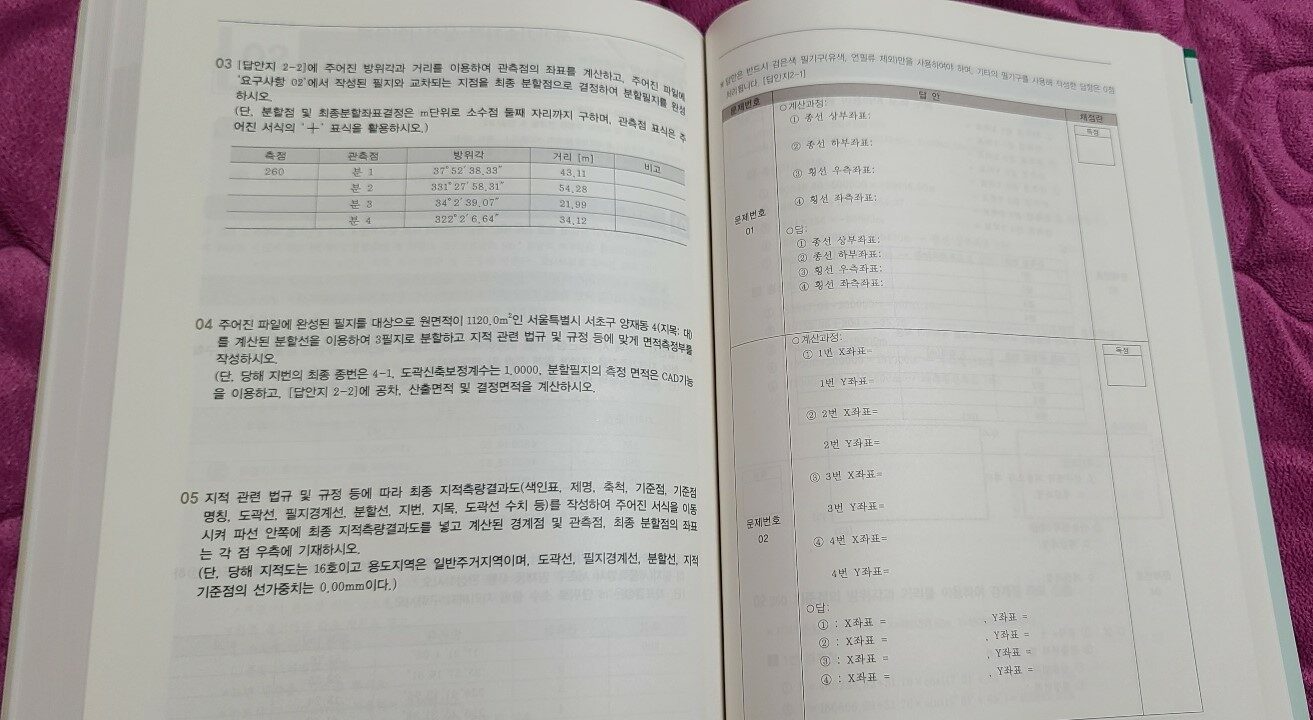 03 [답안지 2-2]에 주어진 방위각과 거리를 이용하여 관측점의 좌표를 계산하고, 주어진 파일에
'요구사항 02'에서 작성된 필지와 교차되는 지점을 최종 분할점으로 결정하여 분할필지를 완성
하시오.
(단, 분할점 및 최종분할좌표결정은 m단위로 소수점 둘째 자리까지 구하며, 관측점 표식은 주
어진 서식의 '+' 표식을 활용하시오.)
측점 관측점 방위각 거리 [m] 비고
260 분 1 37°52′38.33″ 43.11
분 2 331°27′58.31″ 54.28
분 3 34°2′39.07″ 21.99
분 4 322°2′6.64″ 34.12
04 주어진 파일에 완성된 필지를 대상으로 원면적이 1120.0m²인 서울특별시 서초구 양재동 4(지목: 대)
를 계산된 분할선을 이용하여 3필지로 분할하고 지적 관련 법규 및 규정 등에 맞게 면적측정부를
작성하시오.
(단, 당해 지번의 최종 종번은 4-1, 도곽신축보정계수는 1.0000, 분할필지의 측정 면적은 CAD기능
을 이용하고, [답안지 2-2]에 공차, 산출면적 및 결정면적을 계산하시오.
05 지적 관련 법규 및 규정 등에 따라 최종 지적측량결과도(색인표, 제명, 축척, 기준점, 기준점
명칭, 도곽선, 필지경계선, 분할선, 지번, 지목, 도곽선 수치 등)를 작성하여 주어진 서식을 이동
시켜 파선 안쪽에 최종 지적측량결과도를 넣고 계산된 경계점 및 관측점, 최종 분할점의 좌표
는 각 점 우측에 기재하시오.
(단, 당해 지적도는 16호이고 용도지역은 일반주거지역이며, 도곽선, 필지경계선, 분할선, 지적
기준점의 선가중치는 0.00mm이다.)
※ 답안은 반드시 검은색 필기구(유색, 연필류 제외)만을 사용하여야 하며, 기타의 필기구를 사용해 작성한 답항은 0점
처리됩니다. [답안지2-1]
문제번호 답 안 채점란
○계산과정:
① 종선 상부좌표: 득점
② 종선 하부좌표:
③ 횡선 우측좌표:
④ 횡선 좌측좌표:
문제번호
01
○답:
① 종선 상부좌표:
② 종선 하부좌표:
③ 횡선 우측좌표:
④ 횡선 좌측좌표:
○계산과정:
① 1번 X좌표= 득점
1번 Y좌표=
② 2번 X좌표=
2번 Y좌표=
③ 3번 X좌표=
3번 Y좌표=
문제번호
02
④ 4번 X좌표=
4번 Y좌표=
○답:
① : X좌표 = , Y좌표 =
② : X좌표 = , Y좌표 =
③ : X좌표 = , Y좌표 =
④ : X좌표 = , Y좌표 =